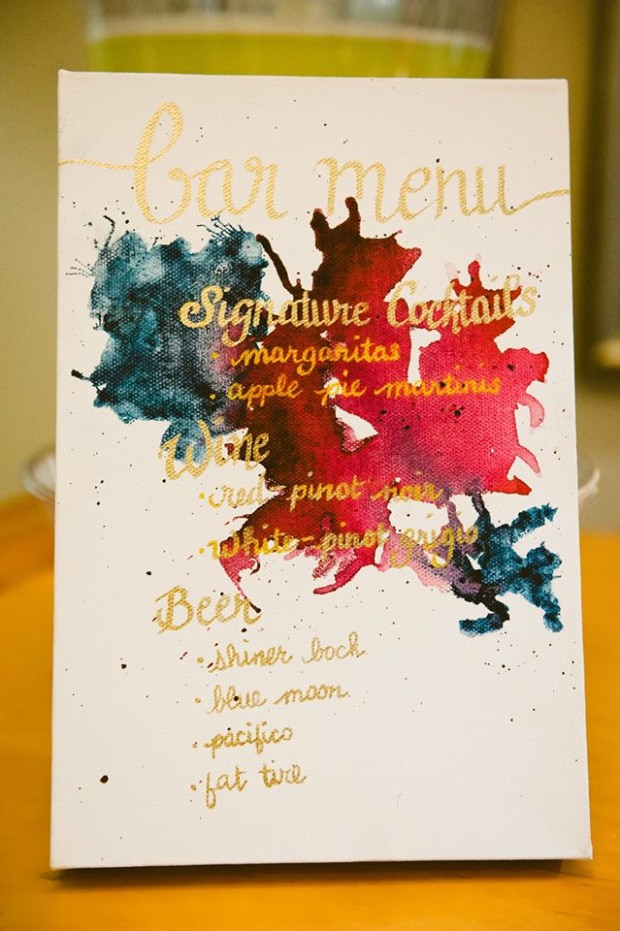 bar menu
Signature Cocktails
· margaritas
· apple pie martinis
Wine
· red - pinot noir
· white - pinot grigio
Beer
· shiner bock
· blue moon
· pacifico
· fat tire